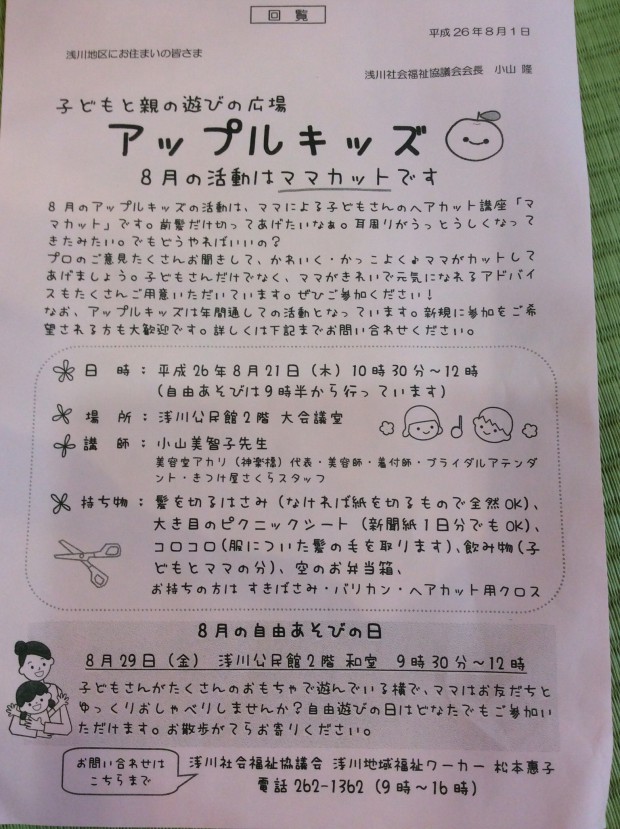 回覧
平成26年8月1日
浅川地区にお住まいの皆さま
浅川社会福祉協議会会長 小山 隆
子どもと親の遊びの広場
アップルキッズ
8月の活動はママカットです
8月のアップルキッズの活動は、ママによる子どもさんのヘアカット講座「マ
マカット」です。前髪だけ切ってあげたいなぁ。耳周りがうっとうしくなって
きたみたい。でもどうやればいいの?
プロのご意見たくさんお聞きして、かわいく・かっこよくママがカットして
あげましょう。子どもさんだけでなく、ママがきれいで元気になれるアドバイ
スもたくさんご用意いただいています。ぜひご参加ください!
なお、アップルキッズは年間通しての活動となっています。新規に参加をご希
望される方も大歓迎です。詳しくは下記までお問い合わせください。
日 時:平成26年8月21日(木)10時30分~12時
(自由あそびは9時半から行っています)
場 所:浅川公民館2階 大会議室
講 師:小山美智子先生
美容室アカリ(神楽橋)代表・美容師・着付師・ブライダルアテンダ
ント・きつけ屋さくらスタッフ
持ち物:髪を切るはさみ(なければ紙を切るもので全然OK)、
大き目のピクニックシート(新聞紙1日分でもOK)、
コロコロ(服についた髪の毛を取ります)、飲み物(子
どもとママの分)、空のお弁当箱、
お持ちの方は すきばさみ・バリカン・ヘアカット用クロス
8月の自由あそびの日
8月29日(金) 浅川公民館2階 和室 9時30分~12時
子どもさんがたくさんのおもちゃで遊んでいる横で、ママはお友だちと
ゆっくりおしゃべりしませんか?自由遊びの日はどなたでもご参加い
ただけます。お散歩がてらお寄りください。
お問い合わせは
こちらまで
浅川社会福祉協議会 浅川地域福祉ワーカー 松本惠子
電話 262-1362(9時~16時)